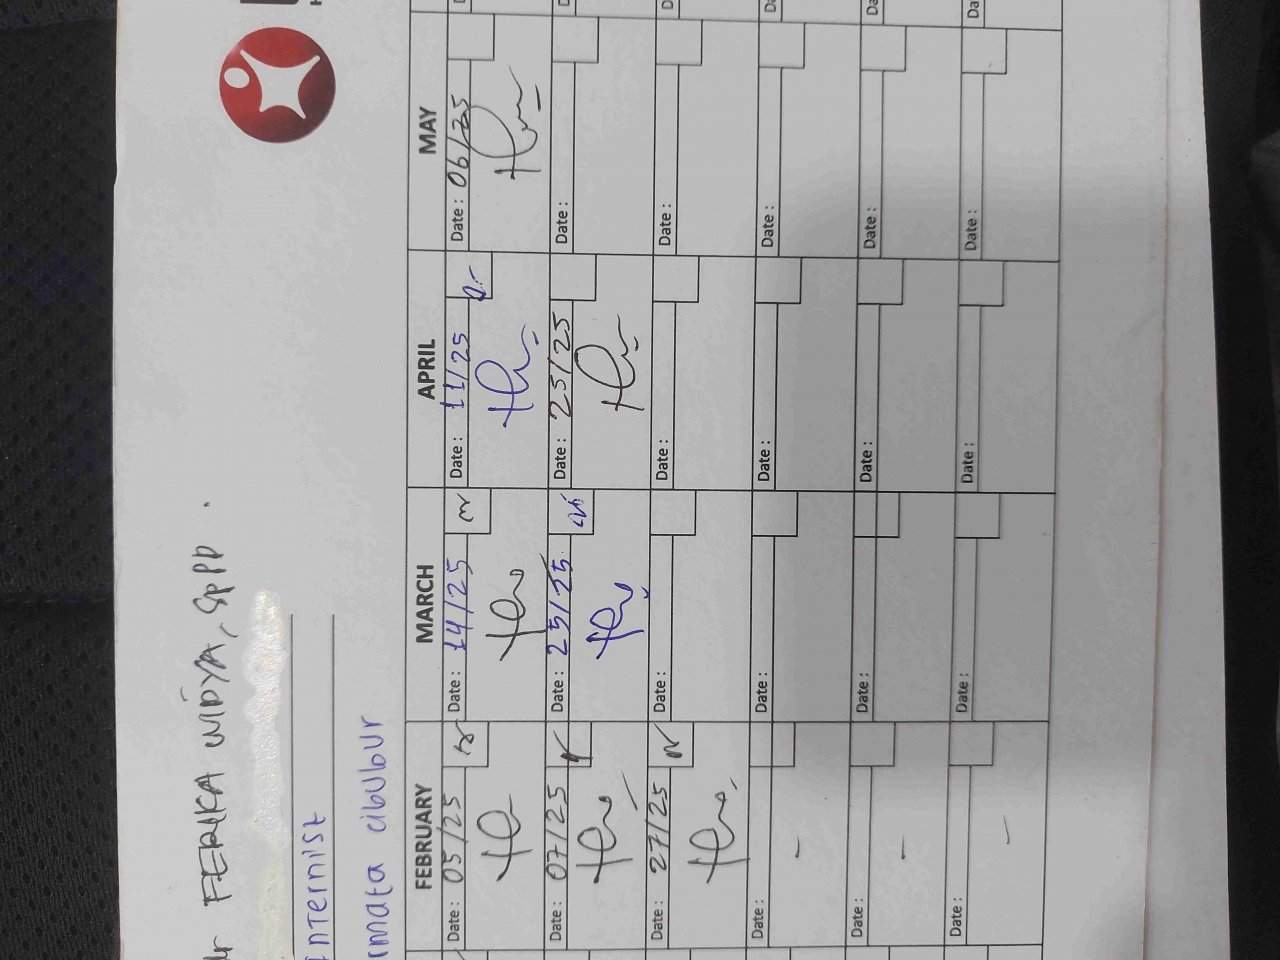 dr FERIKA WIDYA, SpPD.
Internist
rmata cibubur
FEBRUARY MARCH APRIL MAY
Date : 05/25 Date : 14/25 Date : 11/25 Date : 06/25
Date : 07/25 Date : 25/25 Date : 25/25 Date :
Date : 27/25 Date : Date : Date :
Date : Date : Date : Date :
Date : Date : Date : Date :
Date : Date : Date : Date :